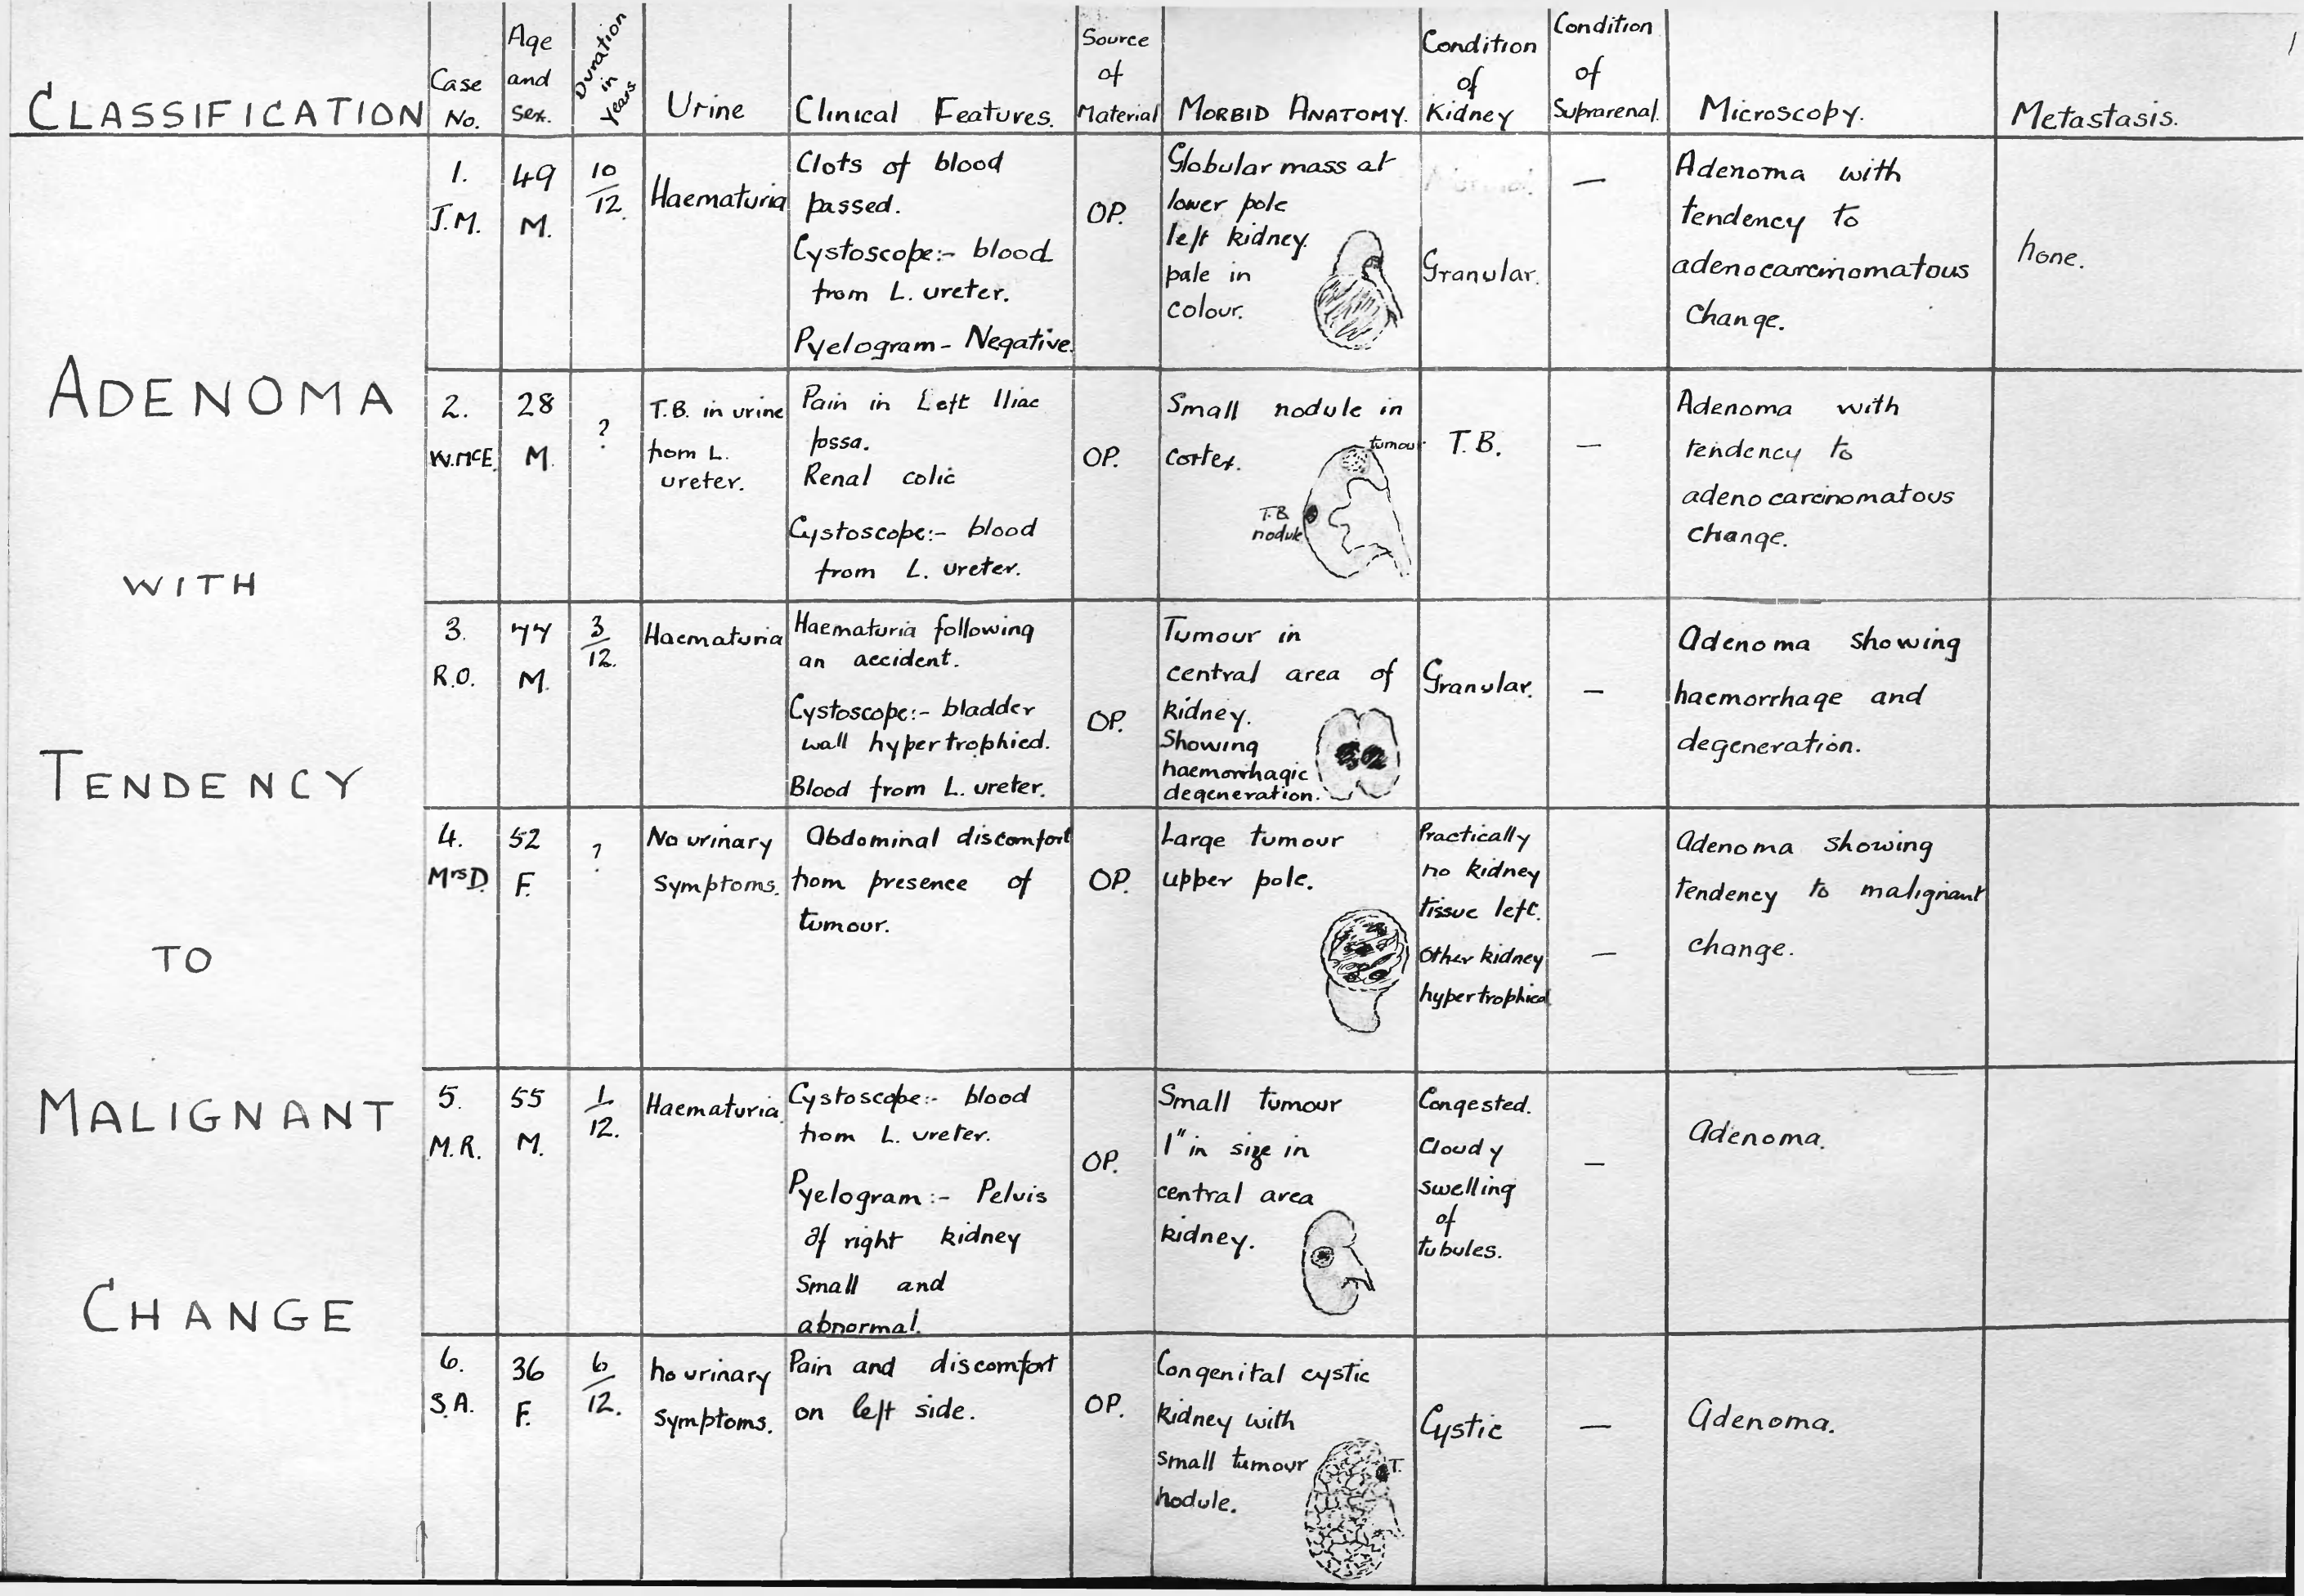 1
CLASSIFICATION
Case
No.
Age
and
Sex.
Duration
in
Years
Urine
Clinical Features.
Source
of
Material
MORBID ANATOMY.
Condition
of
Kidney
Condition
of
Suprarenal.
Microscopy.
Metastasis.
ADENOMA
WITH
TENDENCY
TO
MALIGNANT
CHANGE
1.
J.M.
49
M.
10
12.
Haematuria
Clots of blood
passed.
Cystoscope:- blood
from L. ureter.
Pyelogram - Negative.
OP.
Globular mass at
lower pole
left kidney.
pale in
colour.
Granular.
—
Adenoma with
tendency to
adenocarcinomatous
change.
none.
2.
W.McE.
28
M.
?
T.B. in urine
from L.
ureter.
Pain in Left Iliac
fossa.
Renal colic
Cystoscope:- blood
from L. ureter.
OP.
Small nodule in
cortex.
tumour
T.B.
nodule
T.B.
—
Adenoma with
tendency to
adenocarcinomatous
change.
3.
R.O.
44
M.
3
12.
Haematuria
Haematuria following
an accident.
Cystoscope:- bladder
wall hypertrophied.
Blood from L. ureter.
OP.
Tumour in
central area of
kidney.
Showing
haemorrhagic
degeneration.
Granular.
—
Adenoma showing
haemorrhage and
degeneration.
4.
Mrs D.
52
F.
?
No urinary
symptoms.
Abdominal discomfort
from presence of
tumour.
OP.
Large tumour
upper pole.
Practically
no kidney
tissue left.
Other kidney
hypertrophied
—
Adenoma showing
tendency to malignant
change.
5.
M.R.
55
M.
1
12.
Haematuria.
Cystoscope:- blood
from L. ureter.
Pyelogram:- Pelvis
of right kidney
small and
abnormal.
OP.
Small tumour
1" in size in
central area
kidney.
Congested.
Cloudy
swelling
of
tubules.
—
Adenoma.
6.
S.A.
36
F.
6
12.
no urinary
symptoms.
Pain and discomfort
on left side.
OP.
Congenital cystic
kidney with
small tumour
nodule.
T.
Cystic
—
Adenoma.